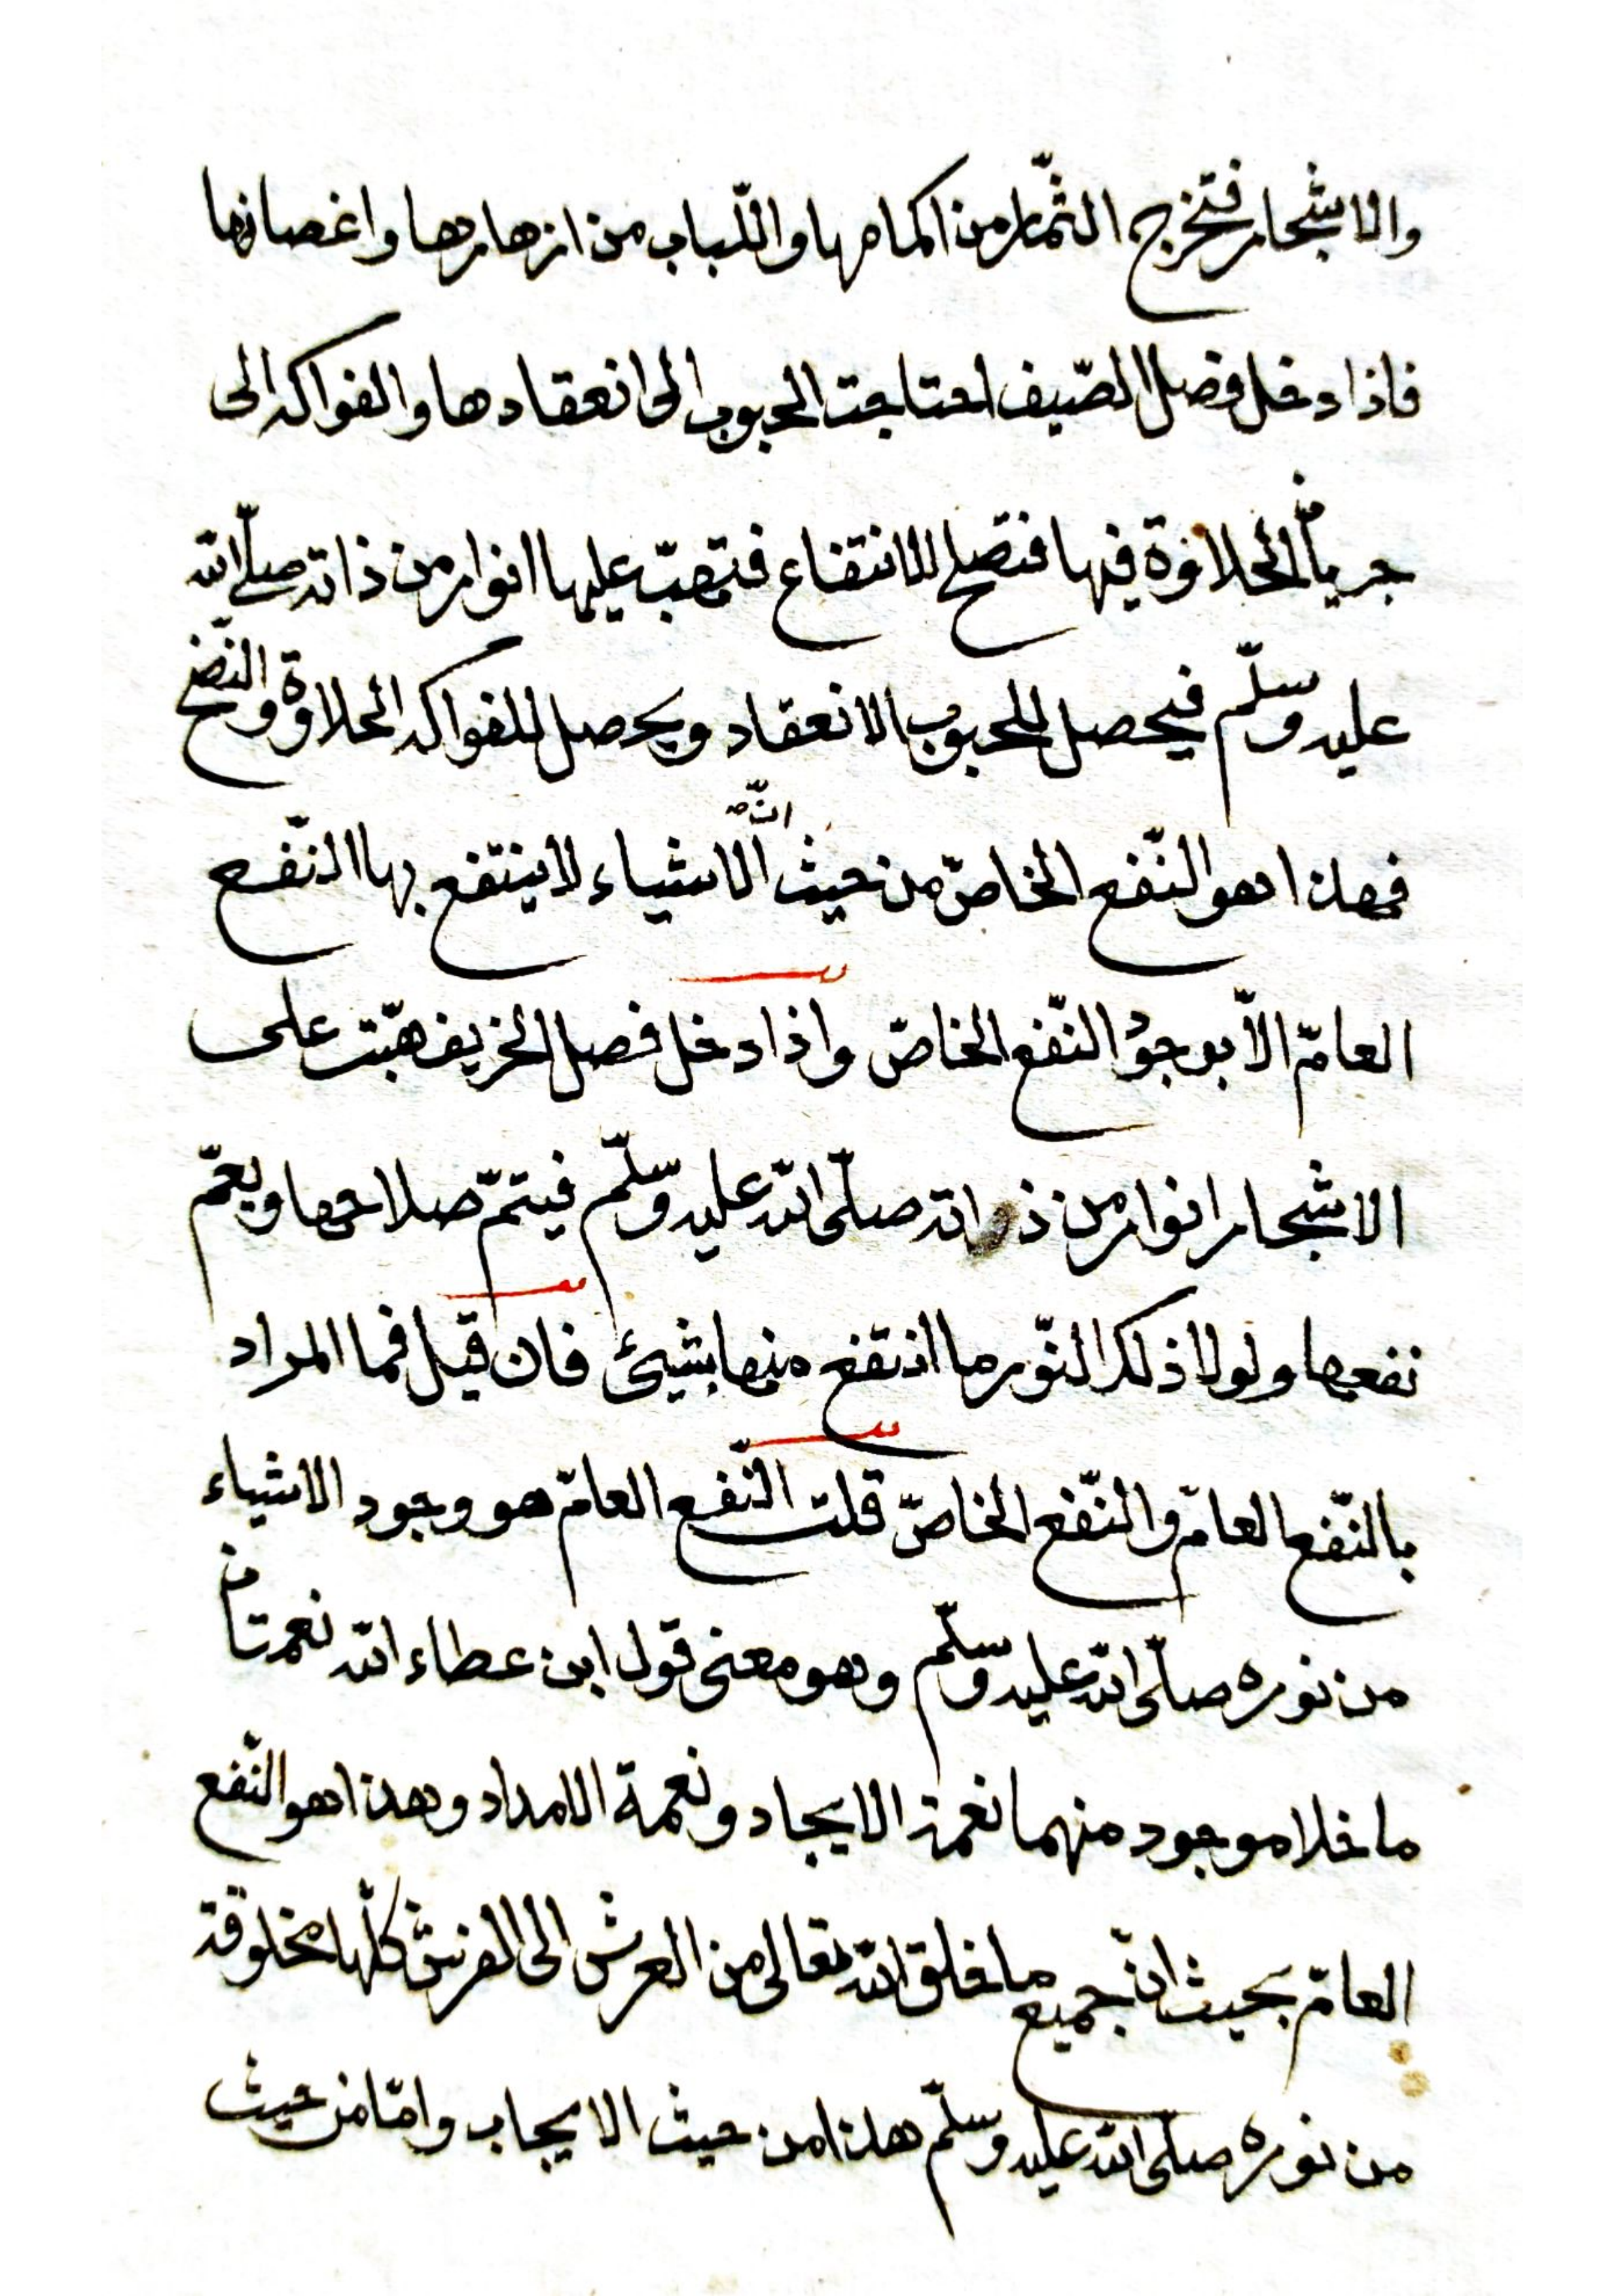 والاشجار فتخرج الثّمار من اكمامها واللّباب من ازهارها واغصانها
فاذا دخل فصل الصّيف احتاجت الحبوب الى انعقادها والفواكه الى
جريان الحلاوة فيها فتصلح للانتفاع فتهبّ عليها انوار من ذاته صلّى الله
عليه وسلّم فيحصل للحبوب الانعقاد ويحصل للفواكه الحلاوة والنّضج
فهذا هو النّفع الخاصّ من حيث انّ الاشياء لا ينتفع بها النّفع
العامّ الّا بوجود النّفع الخاصّ واذا دخل فصل الخريف هبّت على
الاشجار انوار من ذاته صلّى الله عليه وسلّم فيتمّ صلاحها ويعمّ
نفعها ولولا ذلك النّور ما انتفع منها بشيئ فان قيل فما المراد
بالنّفع العامّ والنّفع الخاصّ قلت النّفع العامّ هو وجود الاشياء
من نوره صلّى الله عليه وسلّم وهو معنى قول ابن عطاء الله نعمتان
ما خلا موجود منهما نعمة الايجاد ونعمة الامداد وهذا هو النّفع
العامّ بحيث انّ جميع ما خلق الله تعالى من العرش الى الفرش كلّها مخلوقة
من نوره صلّى الله عليه وسلّم هذا من حيث الايجاب وامّا من حيث